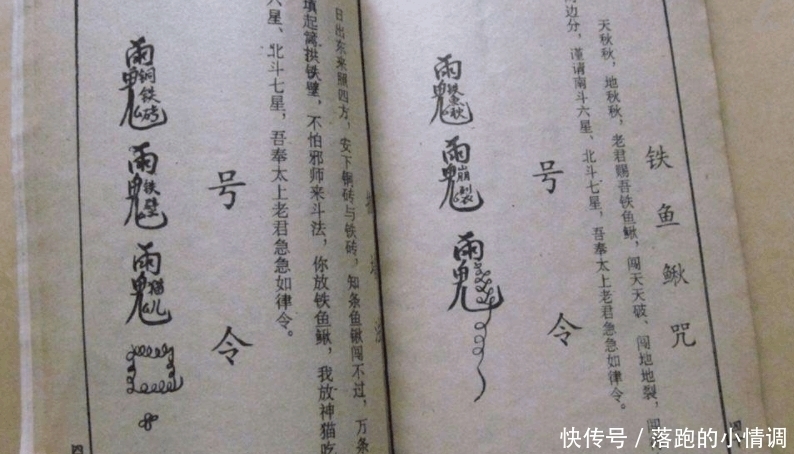 铁鱼鳅咒
天秋秋，地秋秋，老君赐吾铁鱼鳅，闯天天破、闯地地裂，闯
边分，谨请南斗六星、北斗七星，吾奉太上老君急急如律令。
号令
雨鬼铁鱼秋
雨鬼崩裂
雨鬼
日出东来照四方，安下铜砖与铁砖，知条鱼鳅闯不过，万条
填起篱拱铁壁，不怕邪师来斗法，你放铁鱼鳅，我放神猫吃
六星、北斗七星，吾奉太上老君急急如律令。
号令
雨鬼铜铁砖
雨鬼铁壁
雨鬼猫儿
快传号 / 落跑的小情调